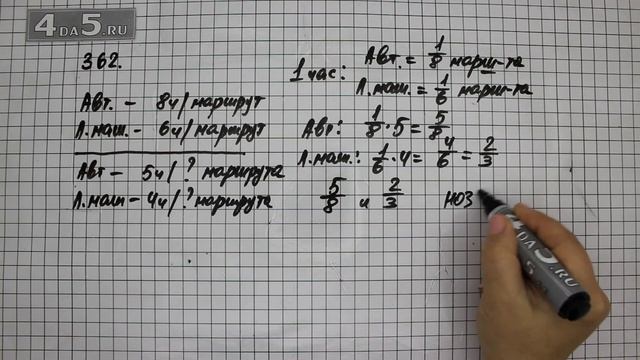 4DA5.RU
362.
Авт. - 8ч/маршрут
Л.маш. - 6ч/маршрут
Авт - 5ч/? маршрута
Л.маш - 4ч/? маршрута
1 час: Авт. = 1/8 марш-та
Л.маш. = 1/6 марш-та
Авт: 1/8 · 5 = 5/8
Л.маш.: 1/6 · 4 = 4/6 = 2/3
5/8 и 2/3 НОЗ
4DA5.RU